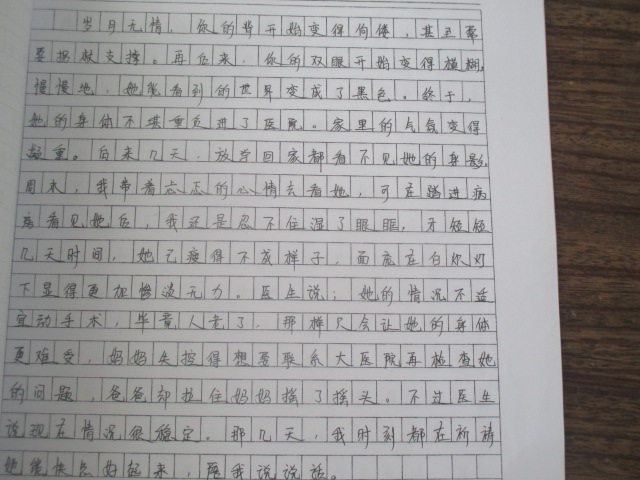 岁月无情，你的背开始变得佝偻，甚至需
要拐杖支撑。再后来，你的双眼开始变得模糊，
慢慢地，她能看到的世界变成了黑色。终于，
她的身体不堪重负进了医院。家里的气氛变得
超重。后来几天，放学回家都看不见她的身影。
周末，我带着忐忑的心情去看她，可在踏进病
房看见她后，我还是忍不住湿了眼眶，才短短
几天时间，她已瘦得不成样子，面庞在白炽灯
下显得更加惨淡无力。医生说：她的情况不适
宜动手术，毕竟人老了，那样只会让她的身体
更难受，妈妈失控得想要联系大医院再检查她
的问题，爸爸却拉住妈妈摇了摇头。不过医生
说现在情况很稳定。那几天，我时刻都在祈祷
她能快点好起来，陪我说说话。